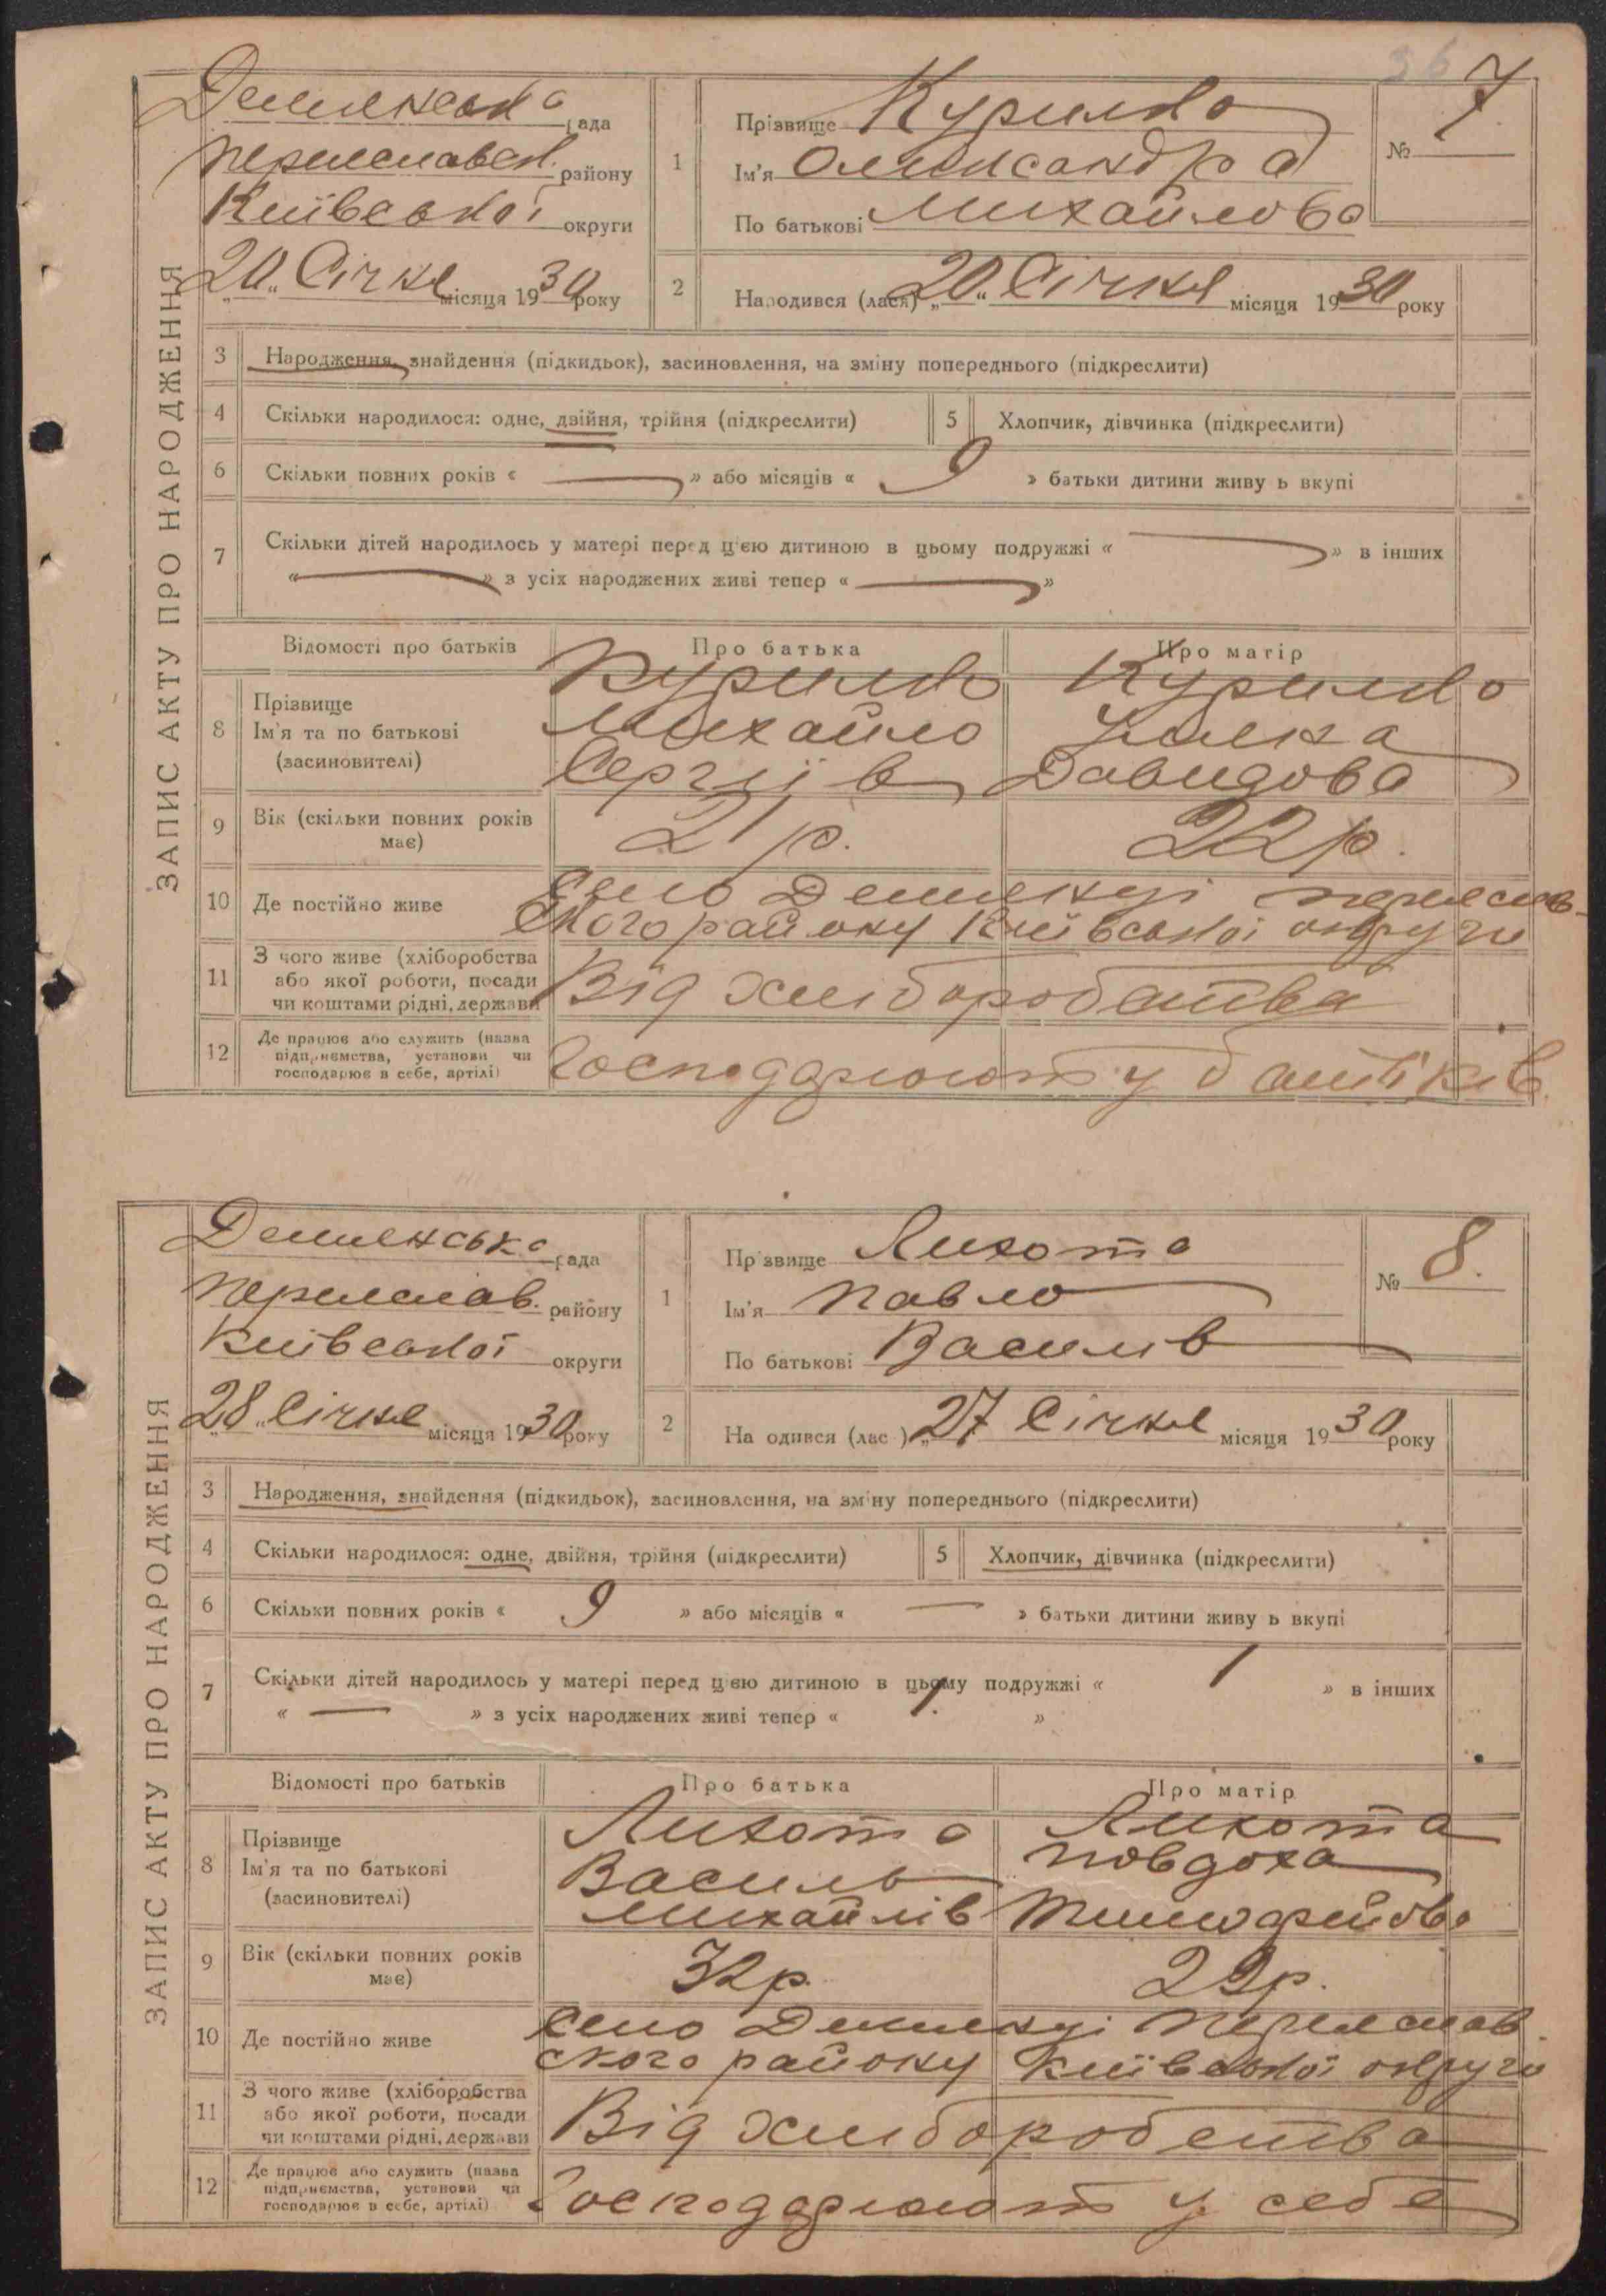 36
7
Демʼянська рада
Переяславськ. району
Київської округи
„20“ Січня місяця 1930 року
1
Прізвище Курило
Ім'я Олександра
По батькові Михайлова
№
2
Народився (лася) „20“ Січня місяця 1930 року
ЗАПИС АКТУ ПРО НАРОДЖЕННЯ
3 Народження, знайдення (підкидьок), засиновлення, на зміну попереднього (підкреслити)
4 Скільки народилося: одне, двійня, трійня (підкреслити)
5 Хлопчик, дівчинка (підкреслити)
6 Скільки повних років « — » або місяців « 9 » батьки дитини живу ь вкупі
7 Скільки дітей народилось у матері перед цією дитиною в цьому подружжі « — » в інших
« — » з усіх народжених живі тепер « — »
Відомості про батьків Про батька Про матір
8 Прізвище Ім'я та по батькові (засиновителі)
Курило Курило
Михайло
Сергіїв Давидова
9 Вік (скільки повних років має) 21 р. 22 р.
10 Де постійно живе Село Демʼянці Переяслав-
ского району Київської округи
11 З чого живе (хліборобства
або якої роботи, посади
чи коштами рідні, держави
Від хліборобства
12 Де працює або служить (назва
підприємства, установи чи
господарює в себе, артілі)
Господарюють у батьків
Демʼянська рада
Переяслав. району
Київської округи
„28“ Січня місяця 1930 року
1
Прізвище Лихота
Ім'я Павло
По батькові Василів
№ 8.
2
Народився (лась) „27 Січня місяця 1930 року
ЗАПИС АКТУ ПРО НАРОДЖЕННЯ
3 Народження, знайдення (підкидьок), засиновлення, на зміну попереднього (підкреслити)
4 Скільки народилося: одне, двійня, трійня (підкреслити)
5 Хлопчик, дівчинка (підкреслити)
6 Скільки повних років « 9 » або місяців « — » батьки дитини живу ь вкупі
7 Скільки дітей народилось у матері перед цією дитиною в цьому подружжі « 1 » в інших
« — » з усіх народжених живі тепер « 1. »
Відомості про батьків Про батька Про матір
8 Прізвище Ім'я та по батькові (засиновителі)
Лихота Лихота
Василь Повдоха
Михайлів Тимофійова
9 Вік (скільки повних років має) 32 р. 29 р.
10 Де постійно живе Село Демʼянці Переяслав-
ского району Київської округи
11 З чого живе (хліборобства
або якої роботи, посади
чи коштами рідні, держави
Від хліборобства
12 Де працює або служить (назва
підприємства, установи чи
господарює в себе, артілі)
Господарюють у себе